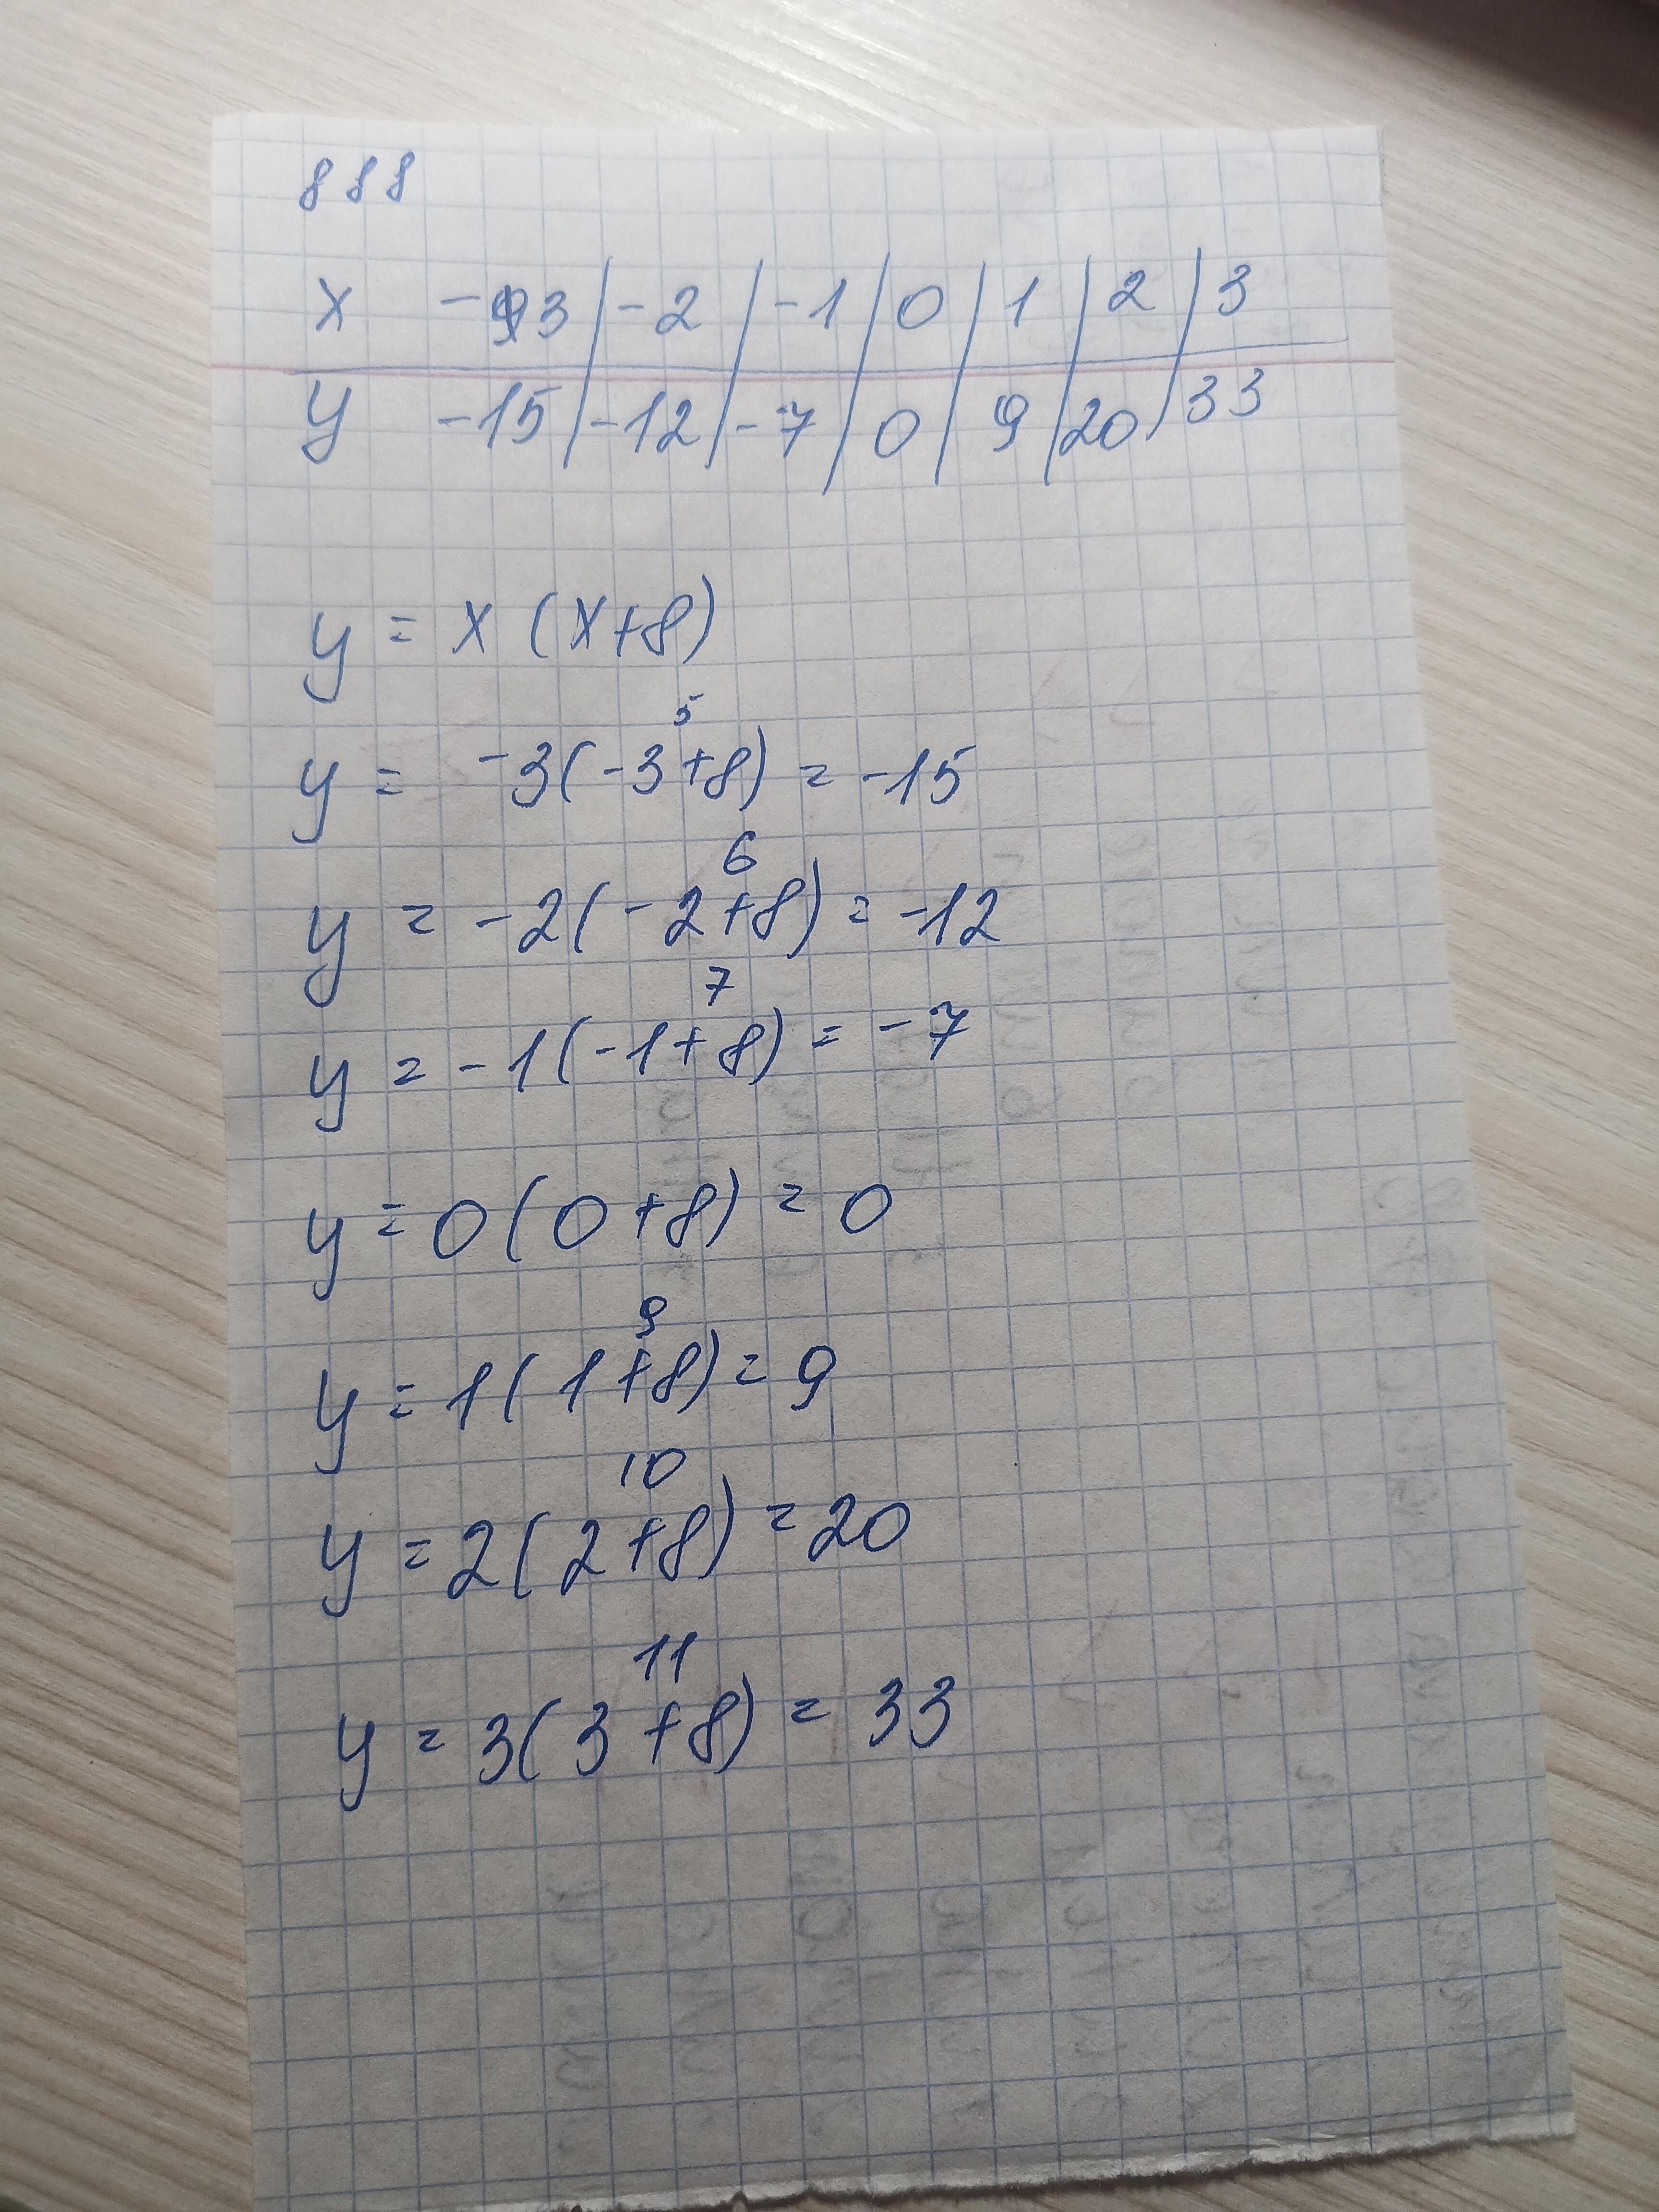 888
x -3 | -2 | -1 | 0 | 1 | 2 | 3
y -15 | -12 | -7 | 0 | 9 | 20 | 33
y = x (x+8)
5
y = -3(-3+8) = -15
6
y = -2(-2+8) = -12
7
y = -1(-1+8) = -7
y = 0(0+8) = 0
9
y = 1(1+8) = 9
10
y = 2(2+8) = 20
11
y = 3(3+8) = 33